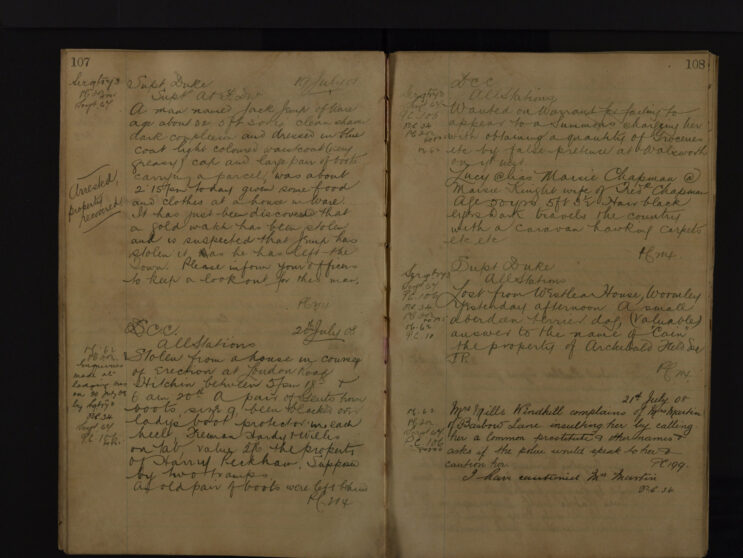 107
Supt Duke 17 July 08
Supt At
A man named Jack Jump of Ware
age about 32 5ft clean shaven
dark complexion and dressed in blue
coat light coloured waistcoat (very
greasy) cap and large pair of boots
carrying a parcel, was about
2.15pm today given some food
and clothes at a house in Ware.
It has just been discovered that
a gold watch has been stolen
and is suspected that Jump has
stolen it as he has left the
Town. Please inform your Officers
to keep a look out for this man.
Arrested,
property
recovered
DCC 20th July 08
All Stations
Stolen from a house in course
of erection at London Road
Hitchin between 5pm 18th &
6 am 20th A pair of Gents brown
boots, size 9, been blacked over
ladys boot protector in each
heel Freeman Hardy & Willis
on tab, value the property
of Harry Peckham, Suppose
by two tramps
An old pair of boots were left behind
PC
Enquiries
made at
lodging
on 20 July 08
by
PC 34
Sergt 67
108
DCC
All Stations
Wanted on Warrant for failing to
appear to a Summons charging her
with obtaining a quantity of Groceries
etc by false pretence at Walsworth
on
Lucy alias Maisie Chapman @
Maisie Knight wife of Fredk Chapman
Age 30 yrs 5ft Hair black
eyes dark travels the country
with a caravan hawking carpets
etc etc
Supt Duke
All Stations
Lost from Westlear House, Wormley
Yesterday afternoon A small
aberdeen terrier dog, (Valuable)
answer to the name of "Cain"
the property of Archibald Esq
JP.
21st July 08
Mrs Mills Windhill complains of Mrs Martin
of Barbow Lane insulting her by calling
her a common prostitute & other names &
asks if the police would speak to her &
caution her. PC 199.
I have cautioned Mrs Martin
PC 34